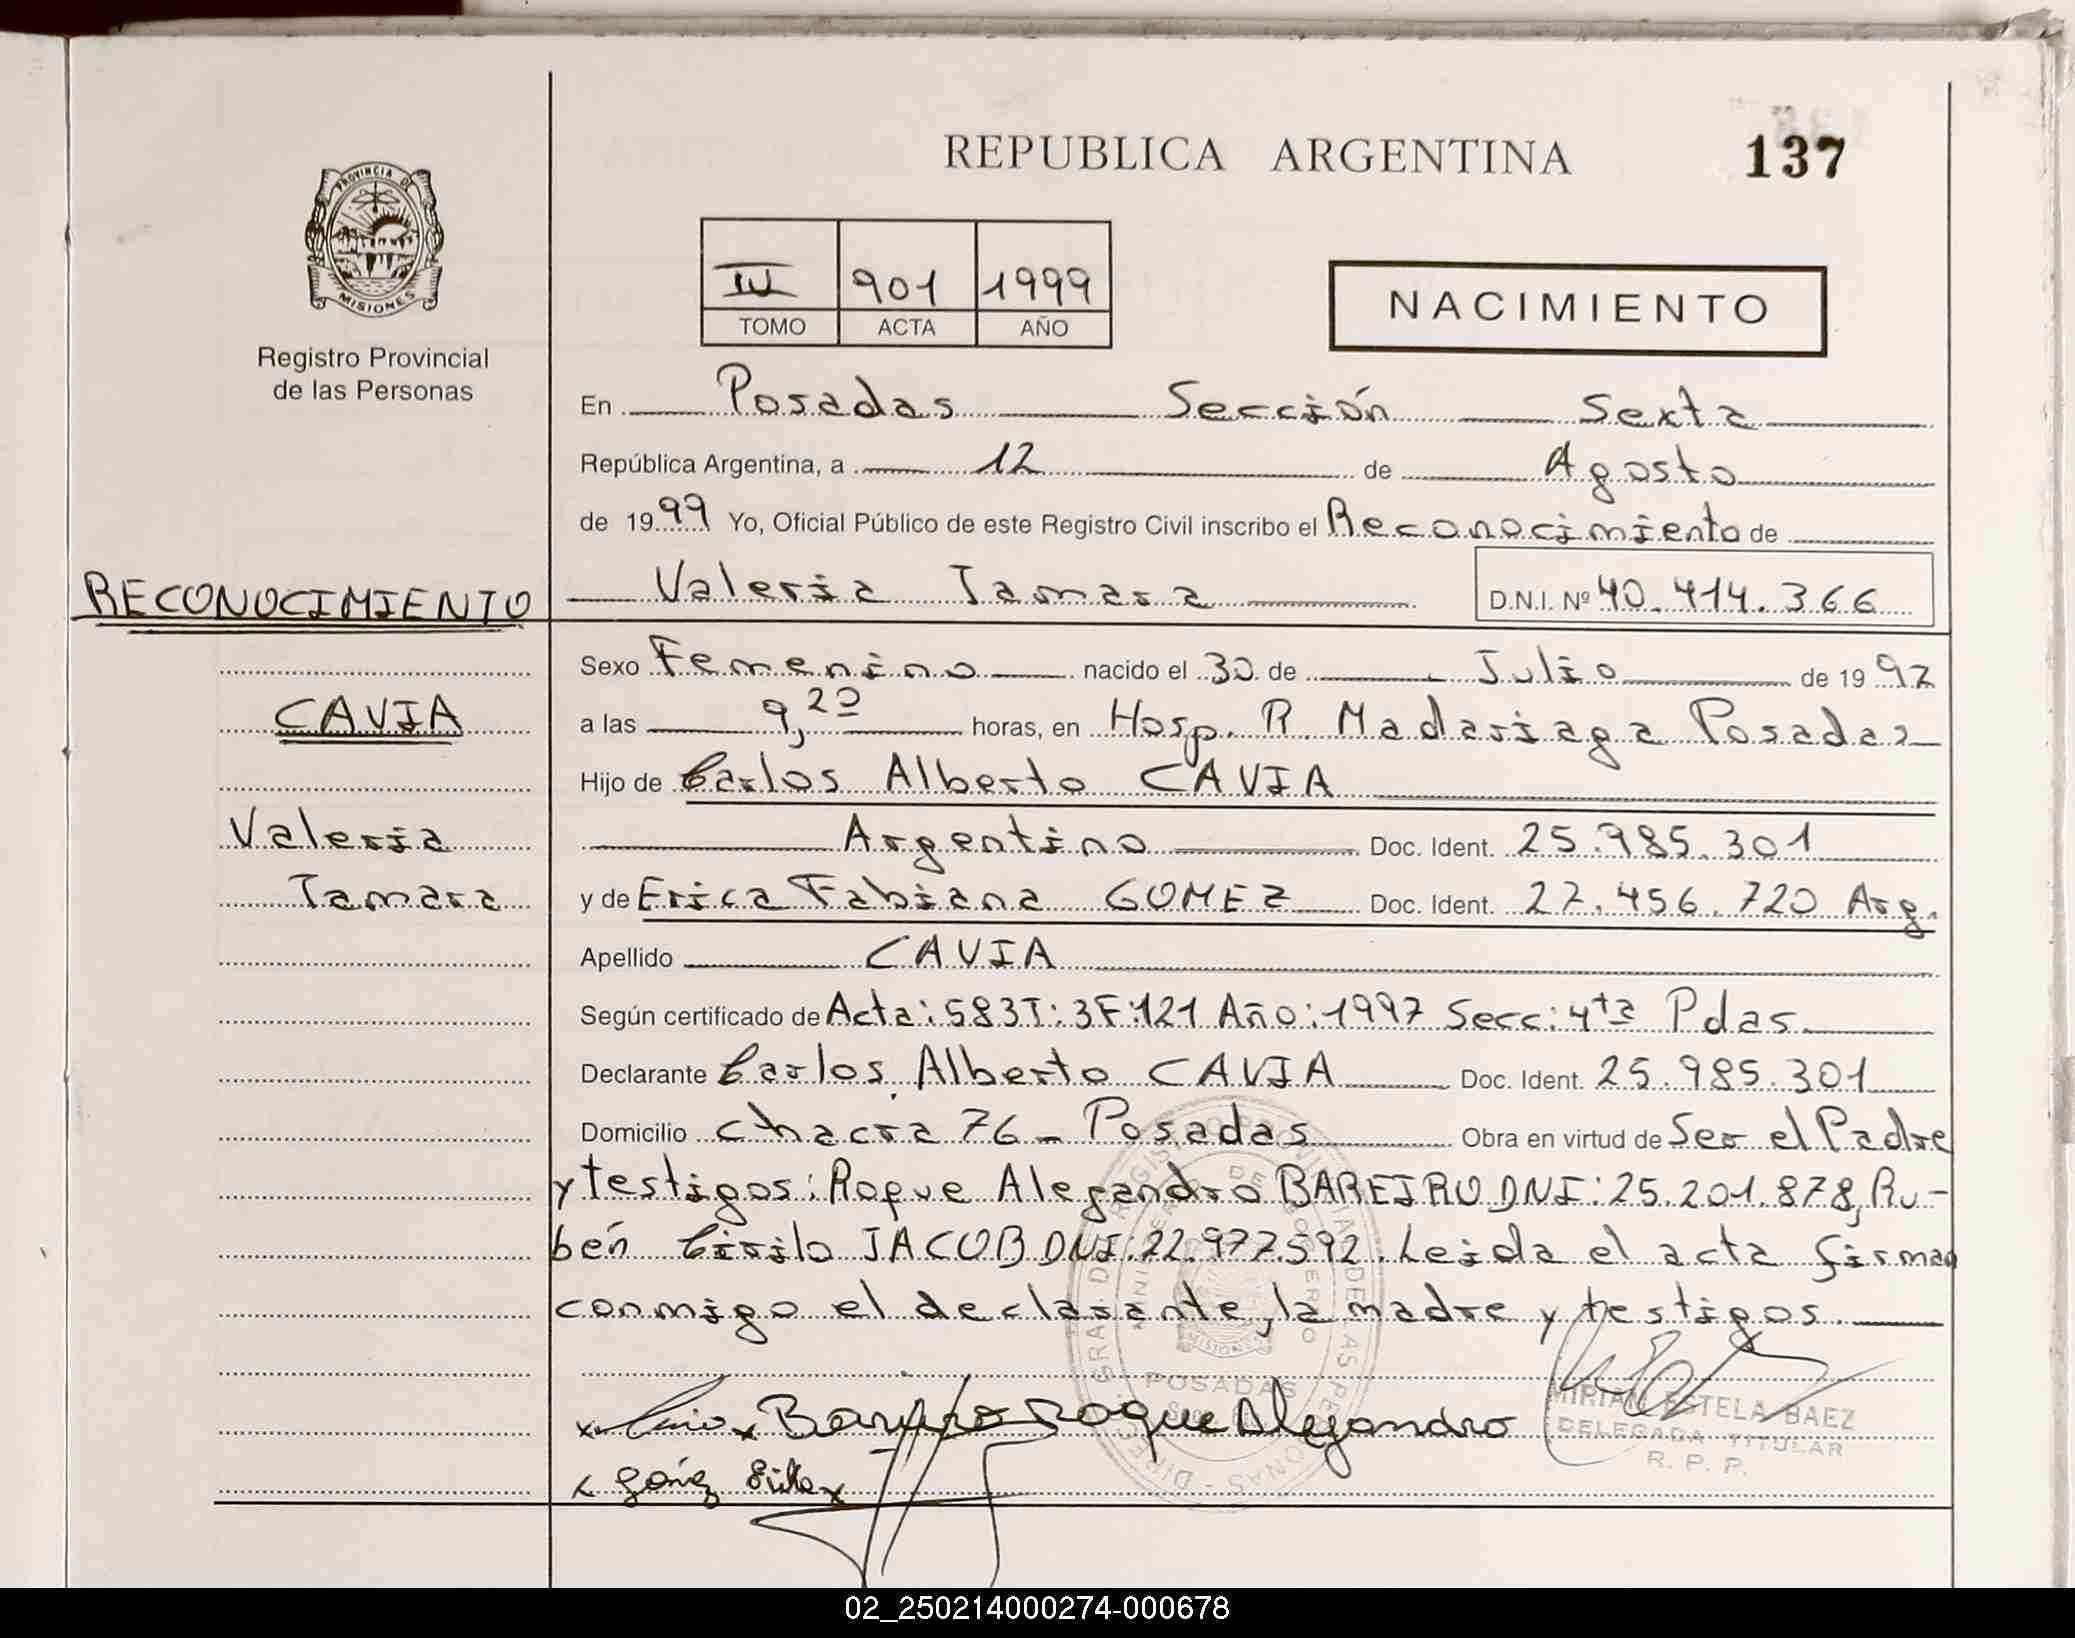 REPUBLICA ARGENTINA
137
PROVINCIA DE
MISIONES
Registro Provincial
de las Personas
901 1999
TOMO ACTA AÑO
NACIMIENTO
En Posadas Sección Sexta
República Argentina, a 12 de Agosto
de 1999 Yo, Oficial Público de este Registro Civil inscribo el Reconocimiento de
RECONOCIMIENTO
Valeria Tamara D.N.I. Nº 40.414.366
Sexo Femenino nacido el 30 de Julio de 1997
CAVIA
a las 9,20 horas, en Hosp. R. Madariaga Posadas
Hijo de Carlos Alberto CAVIA
Valeria
Argentino Doc. Ident. 25.985.301
Tamara
y de Erica Fabiana GOMEZ Doc. Ident. 27.456.720 Arg.
Apellido CAVIA
Según certificado de Acta: 583 T: 3 F: 121 Año: 1997 Secc: 4ta Pdas.
Declarante Carlos Alberto CAVIA Doc. Ident. 25.985.301
Domicilio chacra 76 - Posadas Obra en virtud de Ser el Padre
y testigos: Roque Alejandro BAREIRO DNI: 25.201.878, Ru-
bén Cirilo JACOB DNI: 22.977.592. Leida el acta firman
conmigo el declarante, la madre y testigos.
Roque Alejandro
MIRIAN ESTELA BAEZ
DELEGADA TITULAR
R. P. P.
POSADAS
02_250214000274-000678